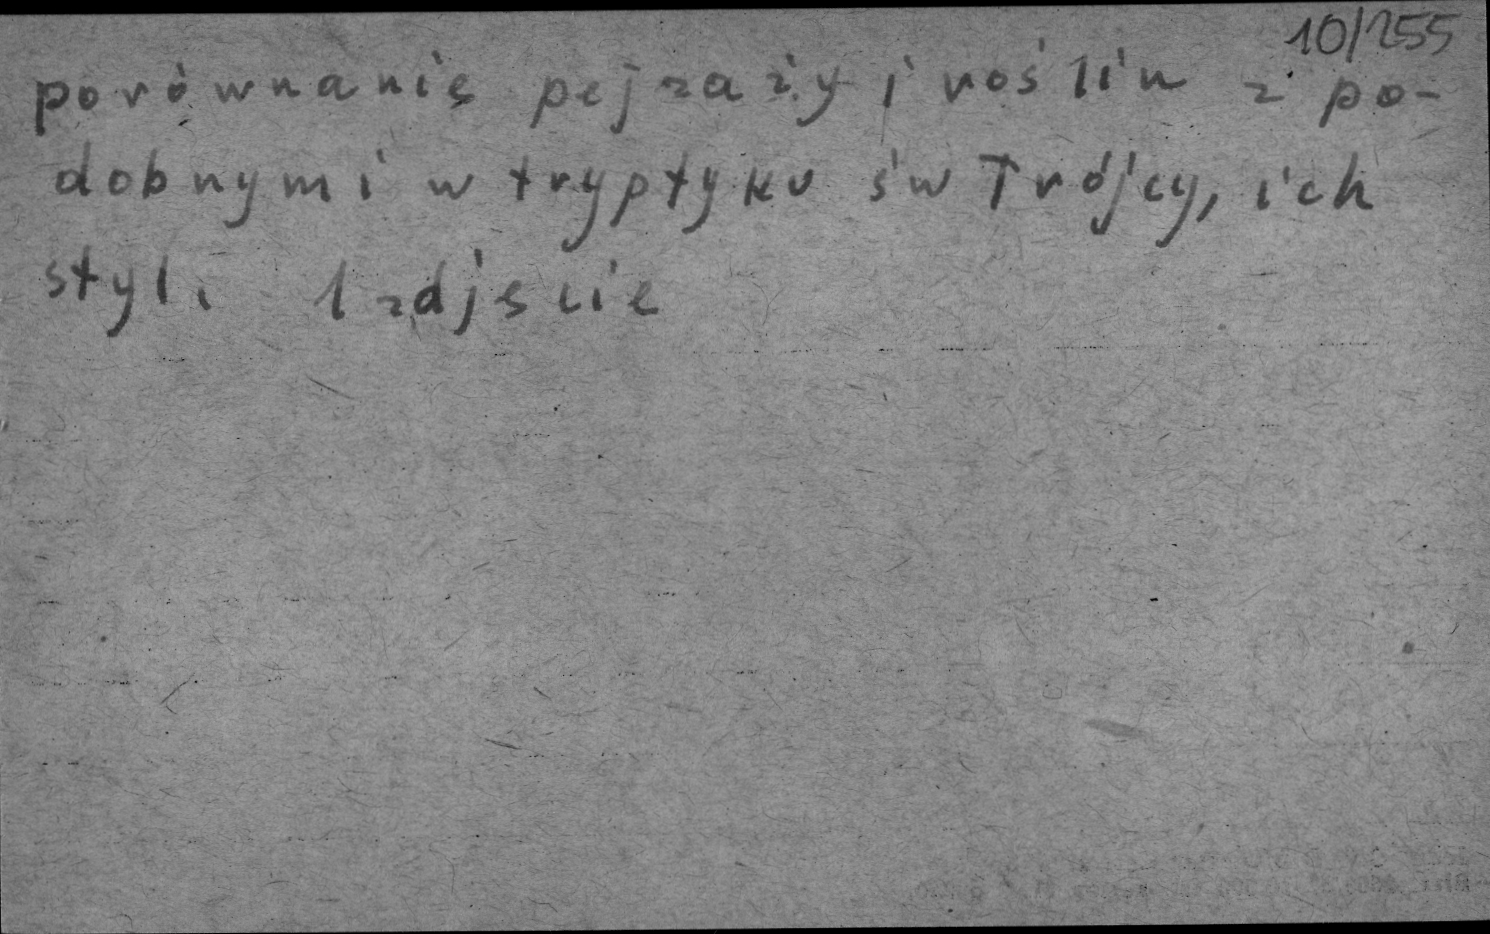 10/255
porównanie pejzaży i roślin z po-
dobnymi w tryptyku św Trójcy, ich
styl. 1 zdjęcie